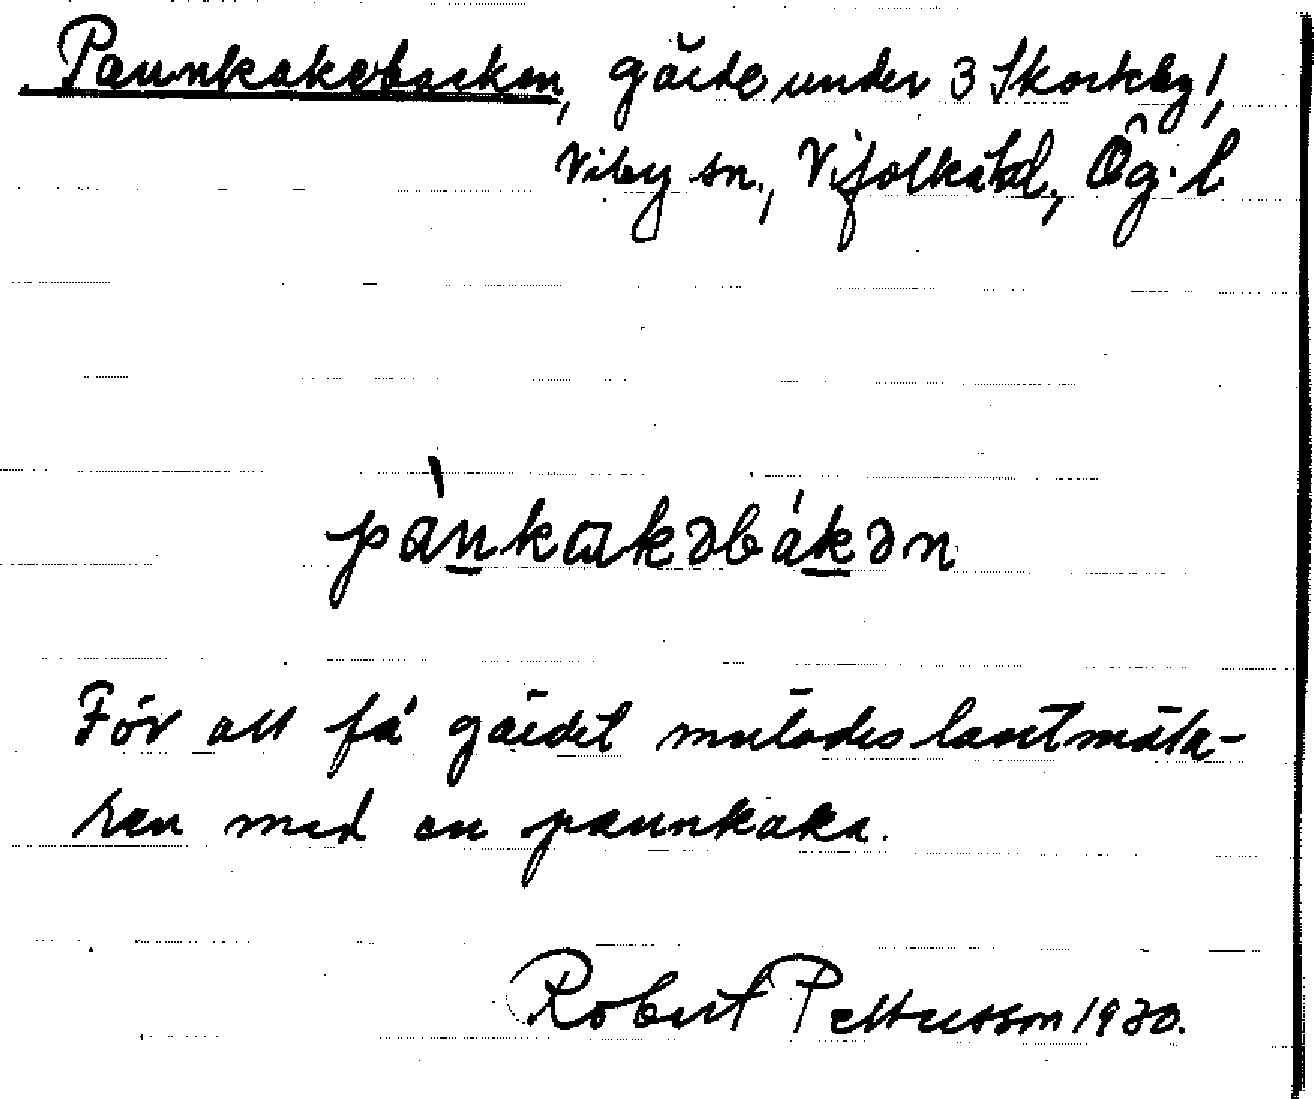 Pannkakebacken, gärde under 3 Skorteby,
Viby sn., Vifolka hd, Ög. l
pànkakəbákən
För att få gärdet mutades lantmäta-
ren med en pannkaka.
Robert Pettersson 1930.